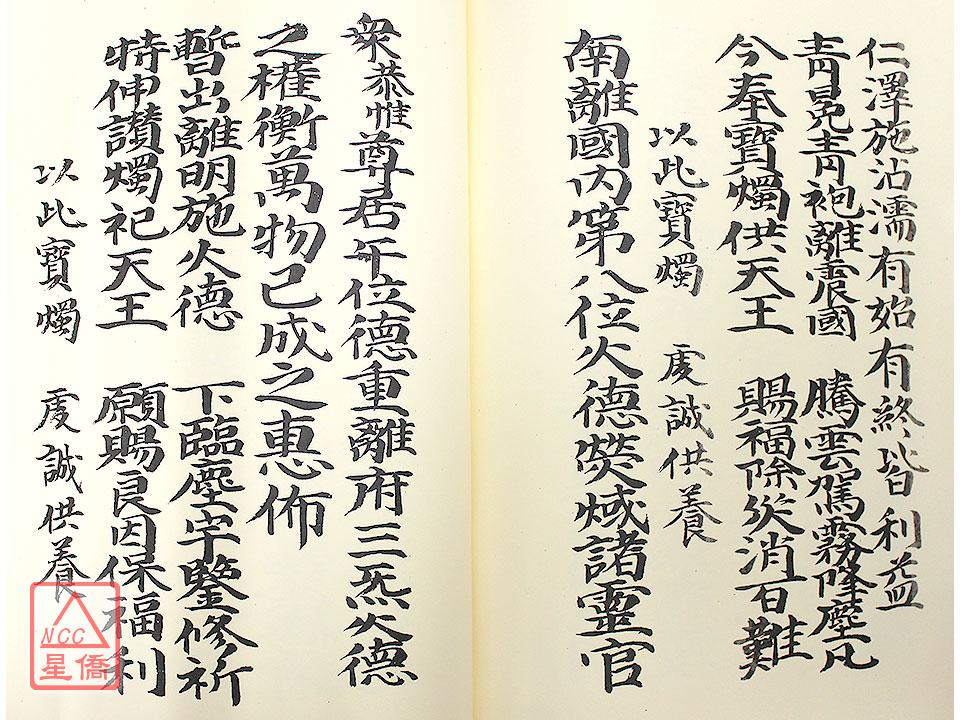 仁澤施沾濡有始有終皆利益
青冕青袍離震國　騰雲駕霧降塵凡
今奉寶燭供天王　賜福除災消百難
以此寶燭　虔誠供養
南離國內第八位火德熒惑諸靈官
眾恭惟尊居午位德重離府三炁火德
之權衡萬物已成之惠佈
暫出離明施火德　下臨塵宇鑒修祈
特伸讚燭祀天王　願賜良因保福利
以此寶燭　虔誠供養
NCC
星僑